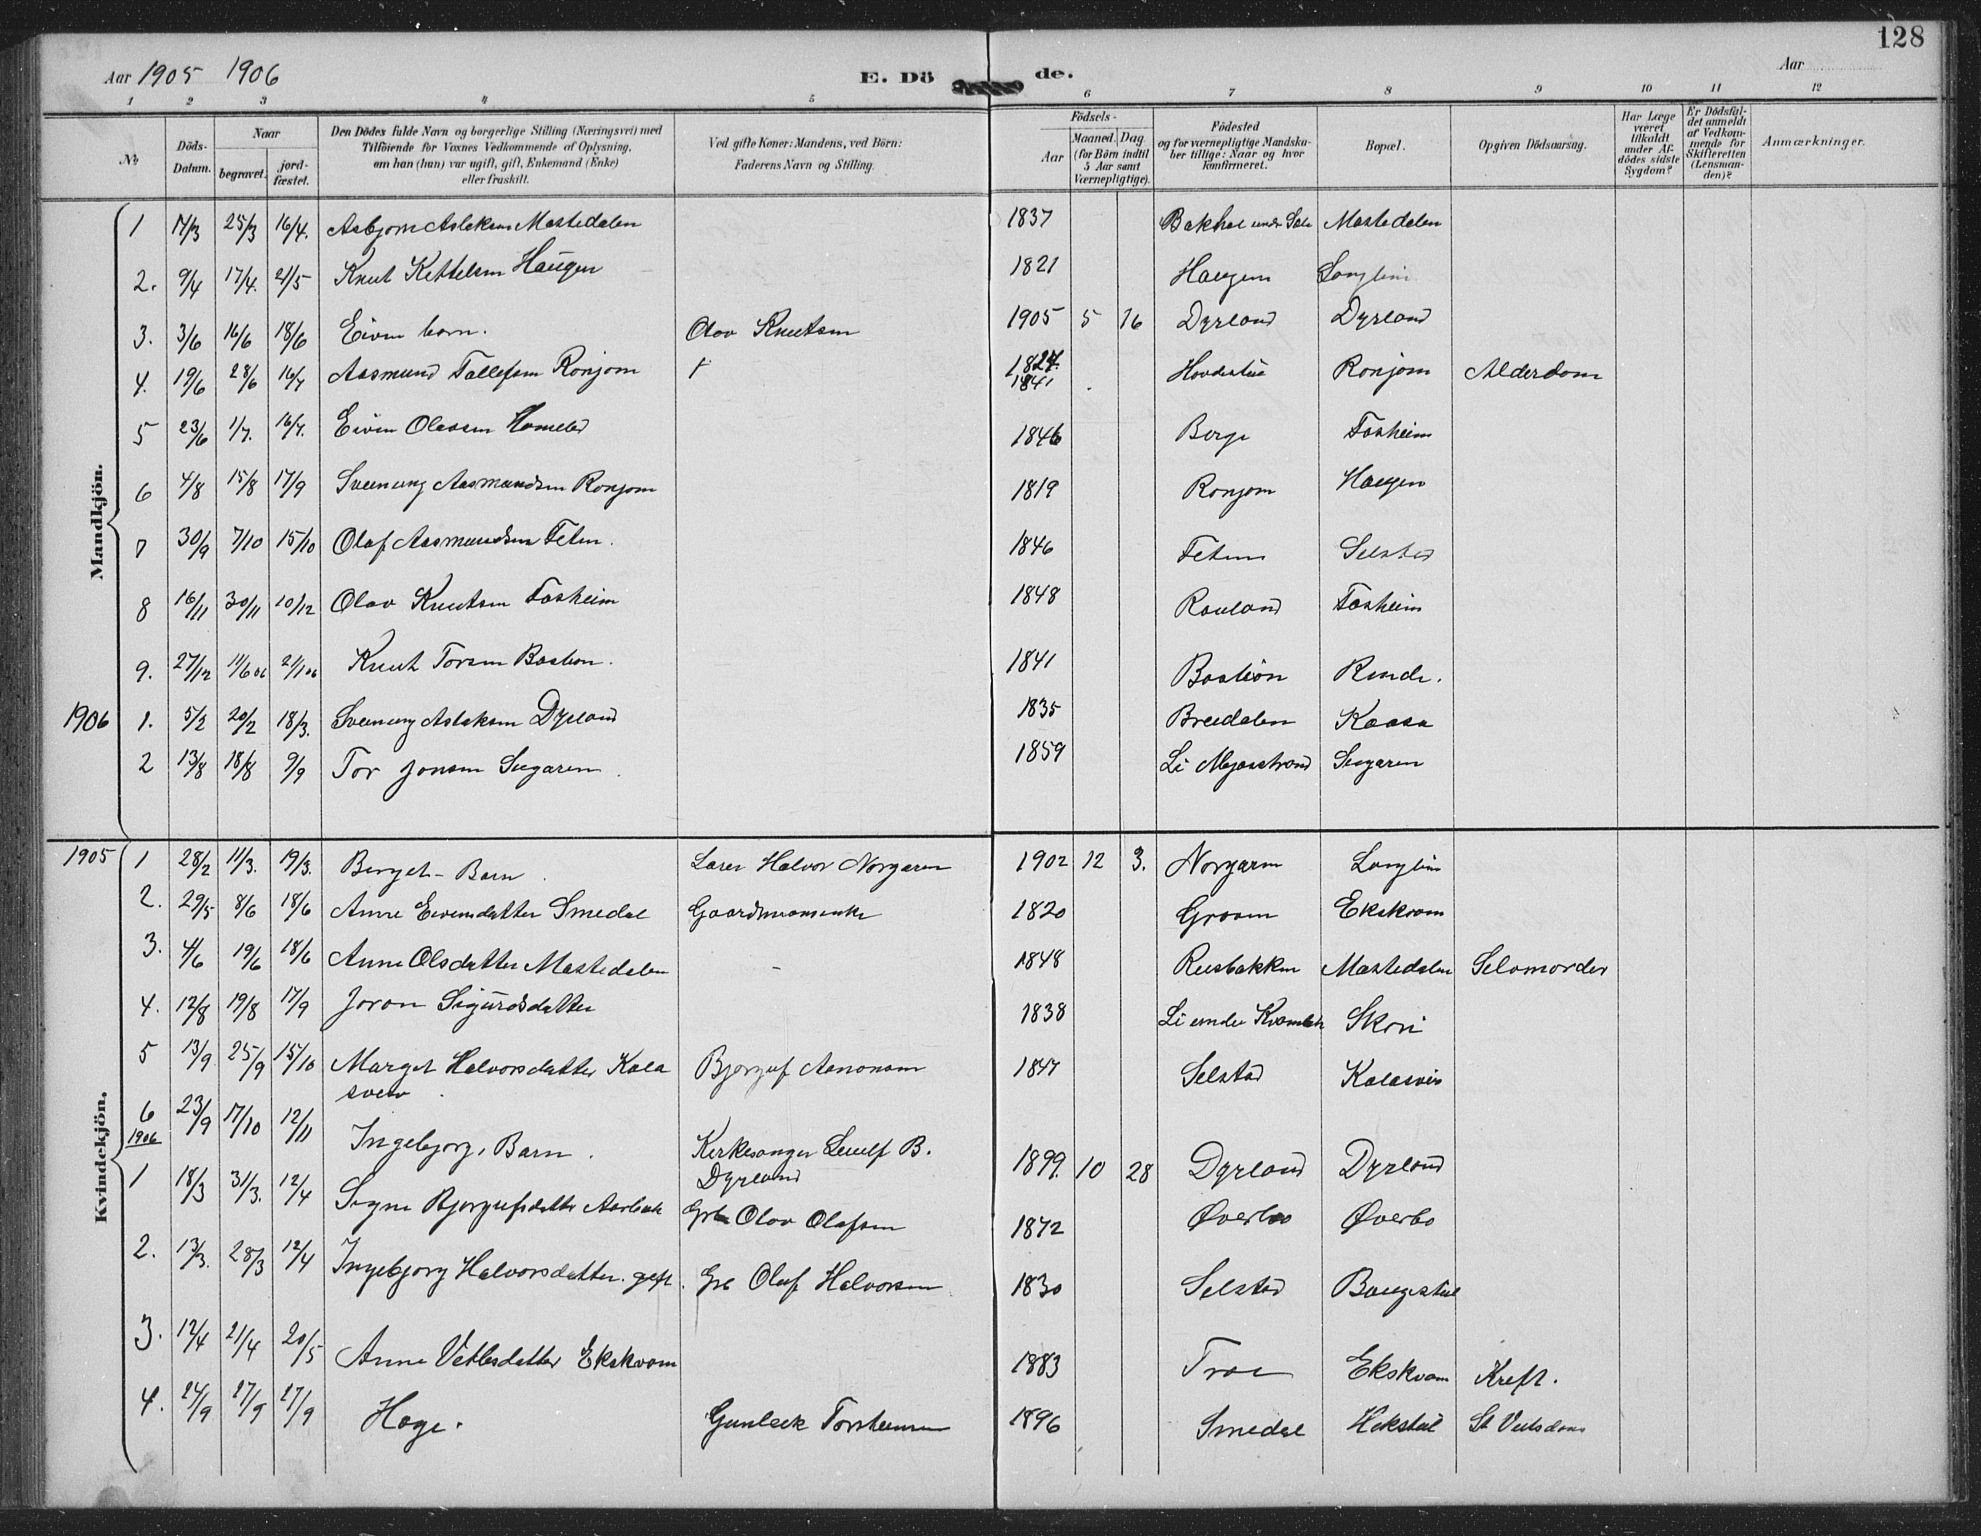 128
Aar 1905 1906 E. Dö de. Aar
1 2 3 4 5 6 7 8 9 10 11 12
No
Döds-Datum.
Naar
begravet.
jord-fæstet.
Den Dödes fulde Navn og borgerlige Stilling (Næringsvei) med
Tilföiende for Voxnes Vedkommende af Oplysning,
om han (hun) var ugift, gift, Enkemand (Enke)
eller fraskilt.
Ved gifte Koner: Mandens, ved Börn:
Faderens Navn og Stilling.
Födsels-
Aar
Maaned. Dag
(for Börn indtil
5 Aar samt
Værnepligtige).
Födested
og for værnepligtige Mandska-
ber tillige: Naar og hvor
konfirmeret.
Bopæl.
Opgiven Dödsaarsag.
Har Læge
været
tilkaldt
under Af-
dödes sidste
Sygdom?
Er Dödsfal-
det anmeldt
af Vedkom-
mende for
Skifteretten
(Lensman-
den)?
Anmærkninger.
Mandkjön.
1 17/3 25/3 16/4. Asbjorn Asleksen Mostedalen 1837 Bakhus under Mostedalen
2. 9/4 17/4. 21/5 Knut Kettelsen Haugen 1821 Haugen
3. 3/6 16/6 18/6 Eiven barn. Olav Knutsen 1905 5 16 Dyrland Dyrland
4. 19/6 28/6 16/7 Aasmund Tallefsen Ronjom + 1824. 1841 Ronjom Alderdom
5 23/6 1/7. 16/7. Eiven Olavsen 1846 Berge Tosheim
6 4/8 15/8 17/9 Sveinung Aasmundsen Ronjom 1819 Ronjom Haugen
7 30/9 7/10 15/10 Olaf Aasmundsen Feten. 1846 Feten Selstad
8 16/11 30/11 10/12 Olav Knutsen Tosheim 1848 Rauland Tosheim
9. 27/12 11/6 06 21/1 06 Knut Torsen Bastion. 1841 Bastion Rinde.
1906 1. 5/2 20/2 18/3. Sveinung Asleksen Dyrland 1835 Breidalen Kaasa
2 13/8 18/8 9/9 Tor Jonsen Sugaren 1859 Li Mjosstrand Sugaren
Kvindekjön.
1905 1 28/2 11/3. 19/3. Berget - Barn. Lærer Halvor Norgaren 1902 12 3. Norgaren
2. 29/5 8/6 18/6 Anne Eivensdatter Smedal Gaardmansenke 1820 Groven Ekskvam
3. 4/6 19/6 18/6 Anne Olsdatter Mostedalen - 1848 Rusbakken Mostedalen Selvmorder
4. 12/8 19/8 17/9 Joron Sigurdsdatter 1838 Li under Skori
5 13/9 25/9 15/10 Marget Halvorsdatter Kala
svev. Bjorguf Aanonsen 1847 Selstad Kalasvev
6 23/9 17/10 12/11 Ingebjorg, Barn. Kirkesanger Leiulf B.
Dyrland 1899. 10 28 Dyrland Dyrland
1906
1 18/3 31/3. 12/4 Signe Bjorgufsdatter Grb Olav Olafsen 1872 Øverbo Øverbo
2. 13/3. 28/3 12/4 Ingebjorg Halvorsdatter. gift. Grb Oluf Halvorsen 1830 Selstad Baugstul
3. 12/4 21/4 20/5 Anne Vetlesdatter Ekskvam 1883 Troe Ekskvam Kreft.
4. 24/9 27/9 27/9 Hæge. Gunleik Torsheimen 1896 Smedal St Veitsdans